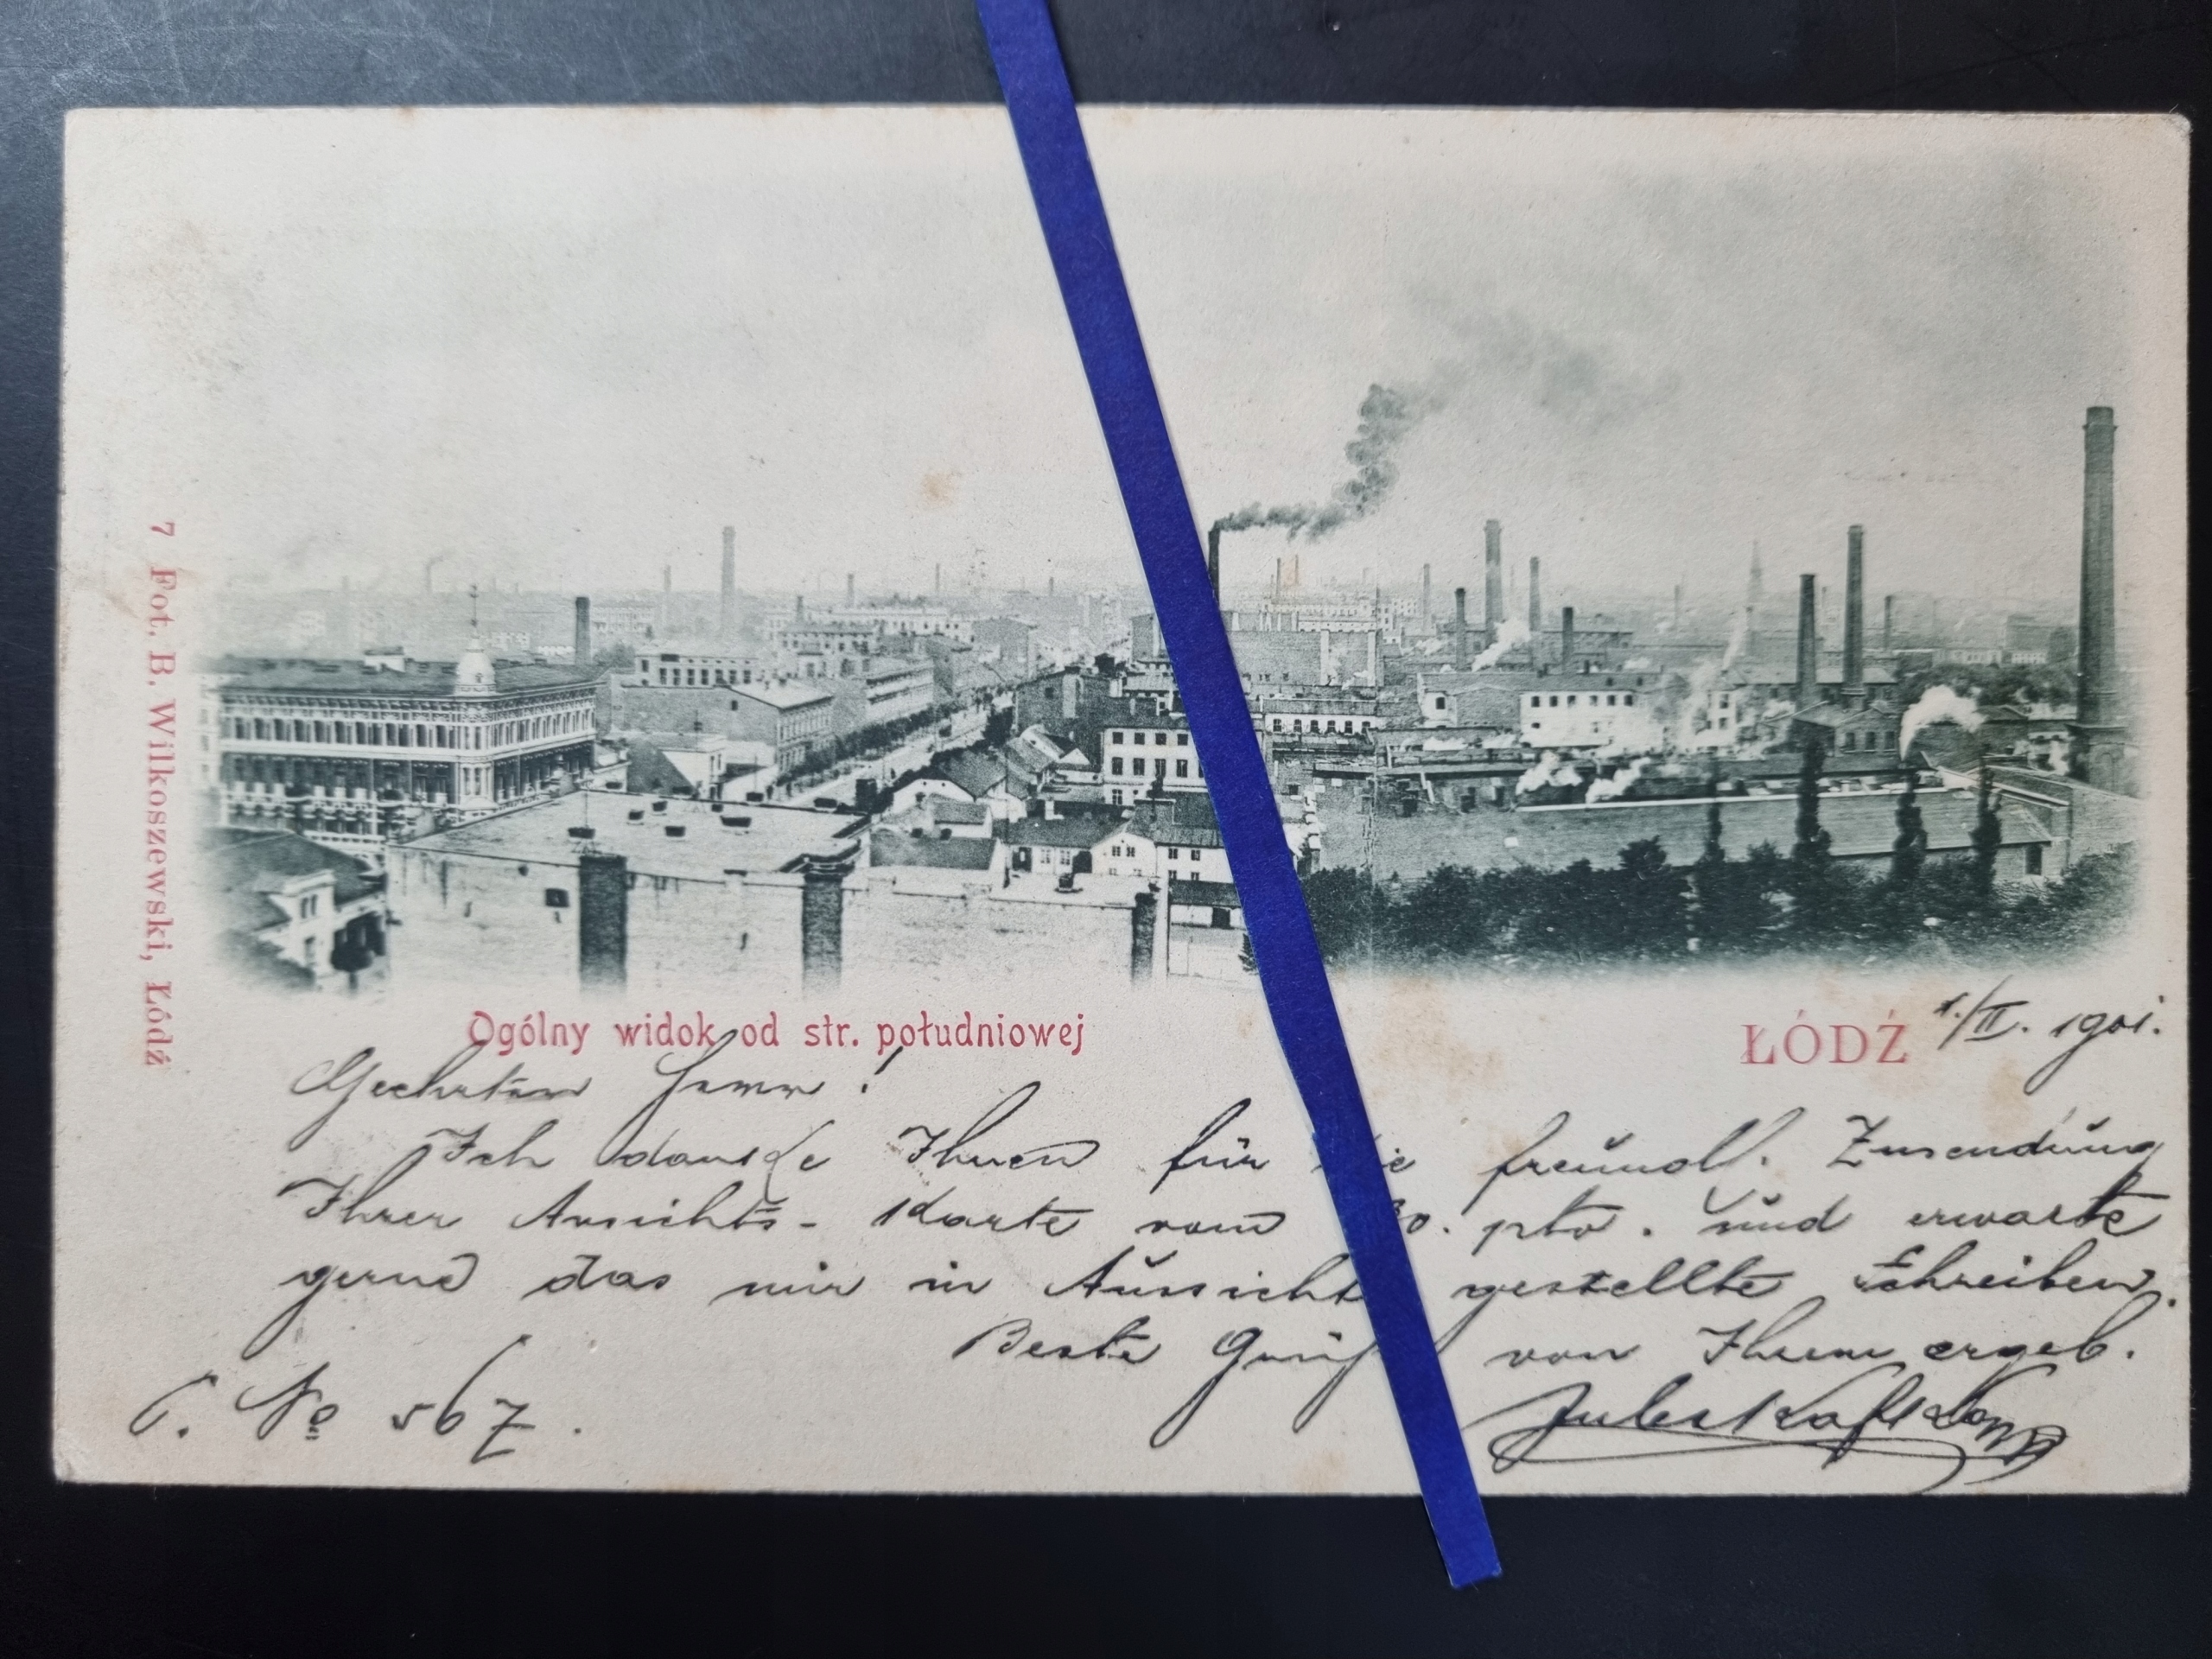 7 Fot. B. Wilkoszewski, Łódź
Ogólny widok od str. południowej
ŁÓDŹ 1./II. 1901.
Geehrter Herr!
Ich danke Ihnen für die freundl. Zusendung
Ihrer Ansichts-Karte vom 30. pto. und erwarte
gerne das mir in Aussicht gestellte Schreiben.
Beste Grüße von Ihrem ergeb.
C. No 567.
Jules